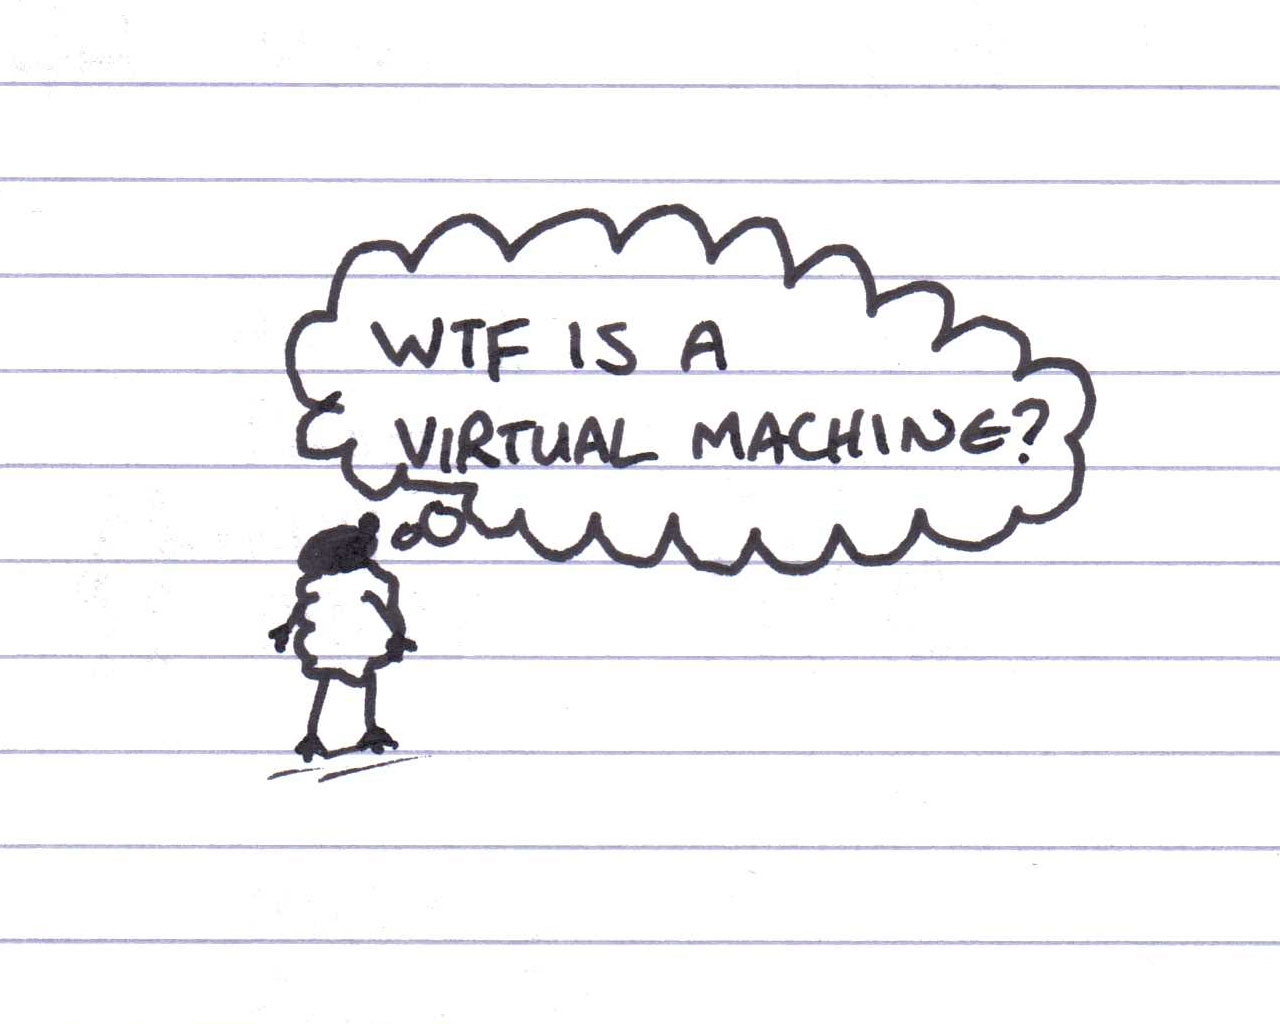 WTF IS A
VIRTUAL MACHINE?